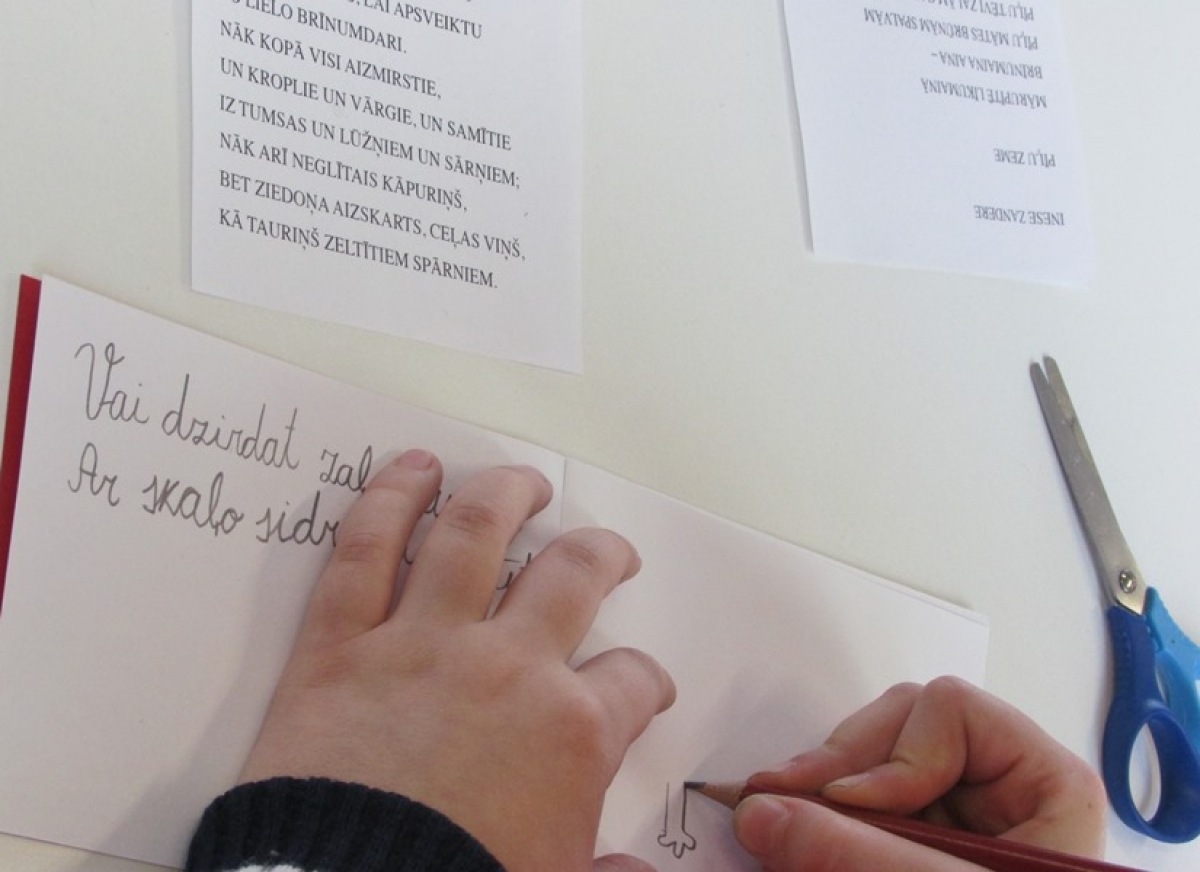 LAI APSVEIKTU
LIELO BRĪNUMDARI.
NĀK KOPĀ VISI AIZMIRSTIE,
UN KROPLIE UN VĀRGIE, UN SAMĪTIE
IZ TUMSAS UN LŪŽŅIEM UN SĀRŅIEM;
NĀK ARĪ NEGLĪTAIS KĀPURIŅŠ,
BET ZIEDOŅA AIZSKARTS, CEĻAS VIŅŠ,
KĀ TAURIŅŠ ZELTĪTIEM SPĀRNIEM.
INESE ZANDERE
PĪĻU ZEME
MĀRUPĪTE LĪKUMAINĀ
BRĪNUMAINA AINA –
PĪĻU MĀTES BRŪNĀM SPALVĀM
PĪĻU TĒVI
Vai dzirdat
Ar skaļo